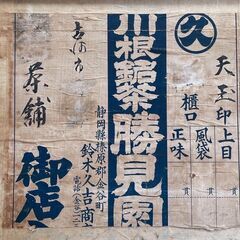 久
天玉印
上目
櫃口
風袋
正味
貫
貫
貫
川根銘茶勝見園
静岡縣榛原郡金谷町
鈴木久吉商
電話(金谷)二二
茶舗
御店